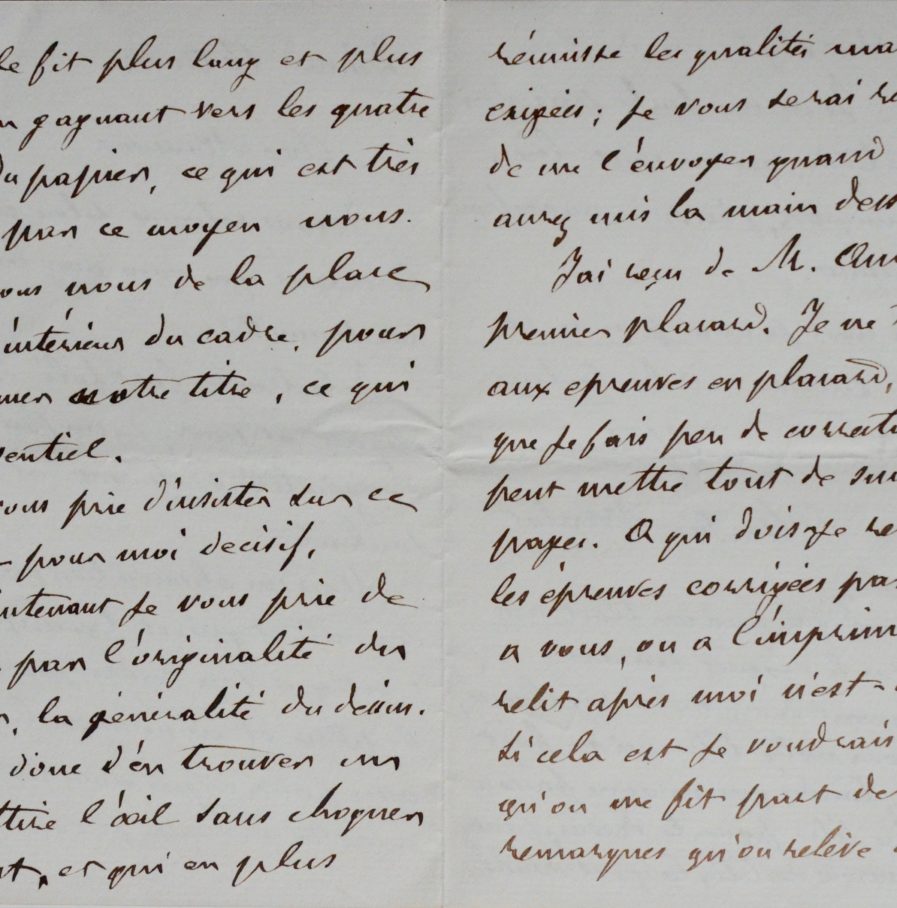 le fit plus long et plus
gagnant vers les quatre
du papier, ce qui est très
par ce moyen nous.
nous de la place
intérieur du cadre, pour
notre titre, ce qui
sentiel.
vous prie d'insister sur ce
pour moi decisif.
intenant je vous prie de
par l'originalité du
, la généralité du dessin.
donc d'en trouver un
ttire l'œil sans choquer
, et qui en plus
réunisse les qualités
exigées ; je vous serai
de me l'envoyer quand
aurez mis la main dess
J'ai reçu de M.
premier placard. Je ne
aux epreuves en placard,
que je fais peu de correcti
peut mettre tout de sui
pages. A qui dois-je
les épreuves corrigées
a vous, ou a l'imprim
relit après moi n'est-
Si cela est je voudrais
qu'on me fit part de
remarques qu'on relève